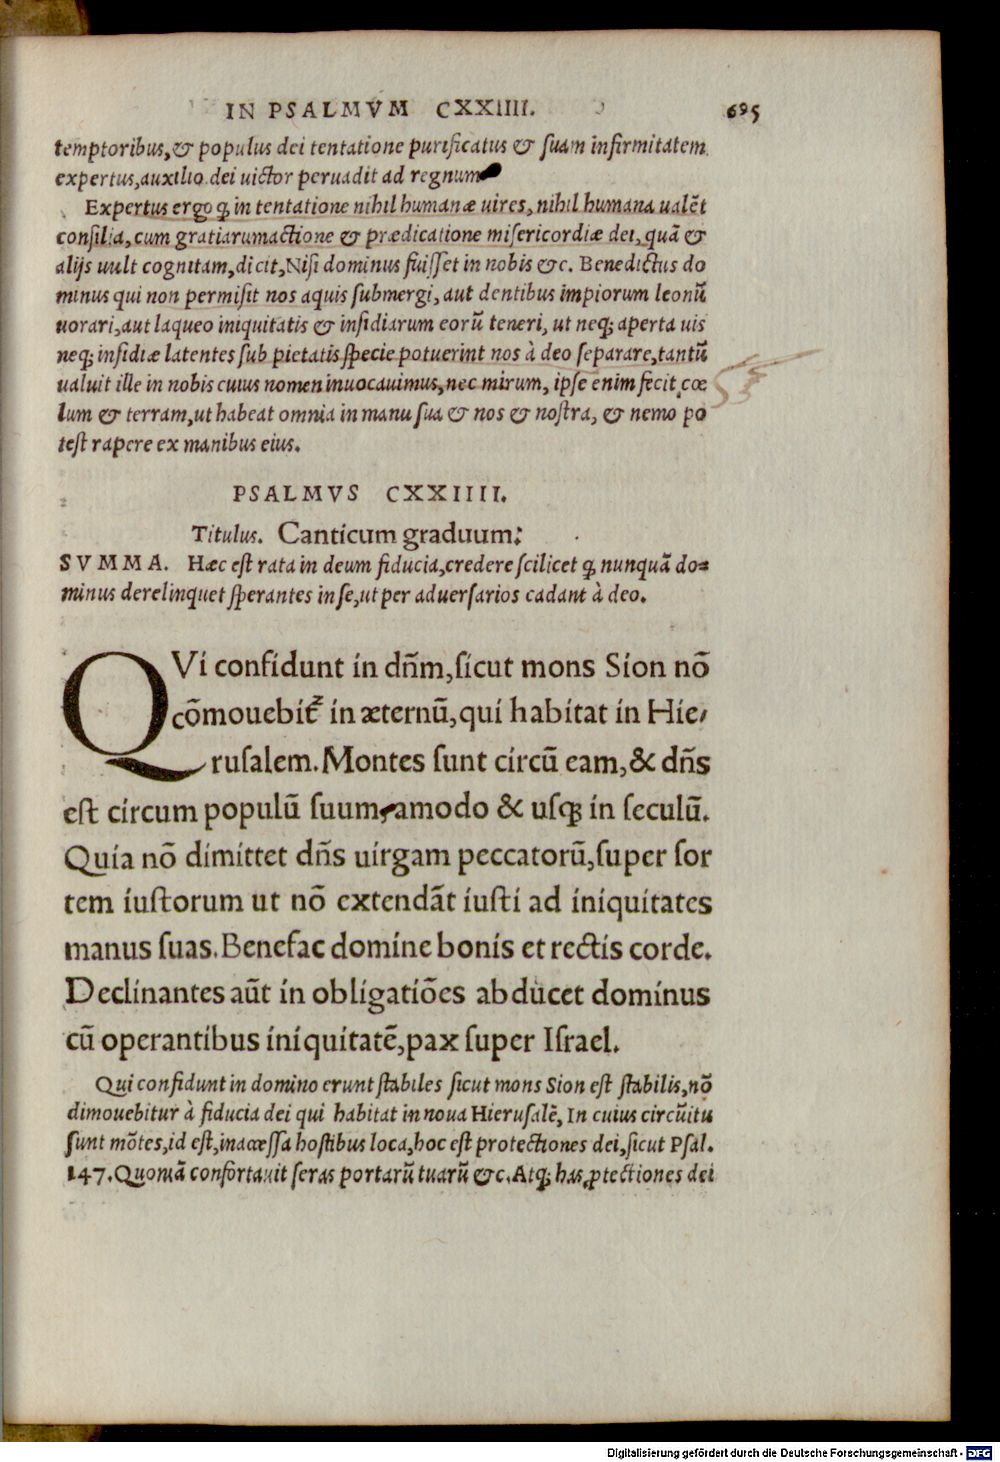 IN PSALMVM CXXIIII. 695
temptoribus,& populus dei tentatione purificatus & ſuam infirmitatem
expertus,auxilio dei uictor peruadit ad regnum
Expertus ergo ꝙ in tentatione nihil humanæ uires, nihil humana ualēt
conſilia, cum gratiarumactione & prædicatione miſericordiæ dei, quā &
alijs uult cognitam, dicit, Niſi dominus fuiſſet in nobis &c. Benedictus do
minus qui non permiſit nos aquis ſubmergi, aut dentibus impiorum leonū
uorari, aut laqueo iniquitatis & inſidiarum eorū teneri, ut neq; aperta uis
neq; inſidiæ latentes ſub pietatis ſpecie potuerint nos à deo ſeparare, tantū
ualuit ille in nobis cuius nomen inuocauimus, nec mirum, ipſe enim fecit cœ
lum & terram, ut habeat omnia in manu ſua & nos & noſtra, & nemo po
teſt rapere ex manibus eius.
PSALMVS CXXIIII.
Titulus. Canticum graduum:
SVMMA. Hæc eſt rata in deum fiducia, credere ſcilicet ꝙ nunquā do=
minus derelinquet ſperantes in ſe, ut per aduerſarios cadant à deo.
QVi confidunt in dñm, ſicut mons Sion nō
cōmouebit᷑ in æternū, qui habitat in Hie-
ruſalem. Montes ſunt circū eam, & dñs
eſt circum populū ſuum, amodo & uſq; in ſeculū.
Quia nō dimittet dñs uirgam peccatorū, ſuper ſor
tem iuſtorum ut nō extendāt iuſti ad iniquitates
manus ſuas. Benefac domine bonis et rectis corde.
Declinantes aūt in obligatiōes abducet dominus
cū operantibus iniquitatē, pax ſuper Iſrael.
Qui confidunt in domino erunt ſtabiles ſicut mons Sion eſt ſtabilis, nō
dimouebitur à fiducia dei qui habitat in noua Hieruſalē, In cuius circūitu
ſunt mōtes, id eſt, inacceſſa hoſtibus loca, hoc eſt protectiones dei, ſicut Pſal.
147. Quoniā confortauit ſeras portarū tuarū &c. Atq; has ꝓtectiones dei
Digitalisierung gefördert durch die Deutsche Forschungsgemeinschaft - DFG